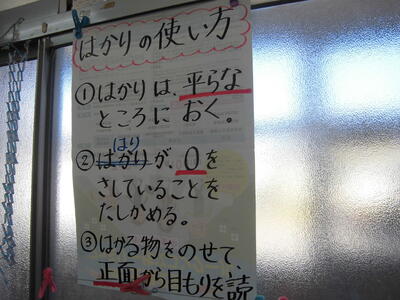 はかりの使い方
①はかりは、平らな
ところに おく。
はり
②はかりが、0を
さしていることを
たしかめる。
③はかる物をのせて、
正面から目もりを読